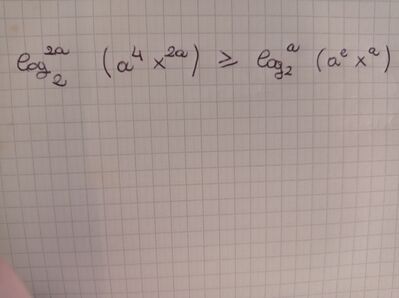 log₂²ᵃ (a⁴ x²ᵃ) ≥ log₂ᵃ (aᵉ xᵃ)